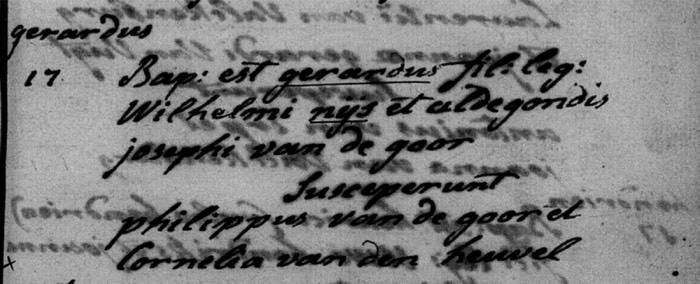 gerardus
17 Bap: est gerardus fil: leg:
Wilhelmi nys et aldegondis
josephi van de goor
Susceperunt
philippus van de goor et
Cornelia van den heuvel
x